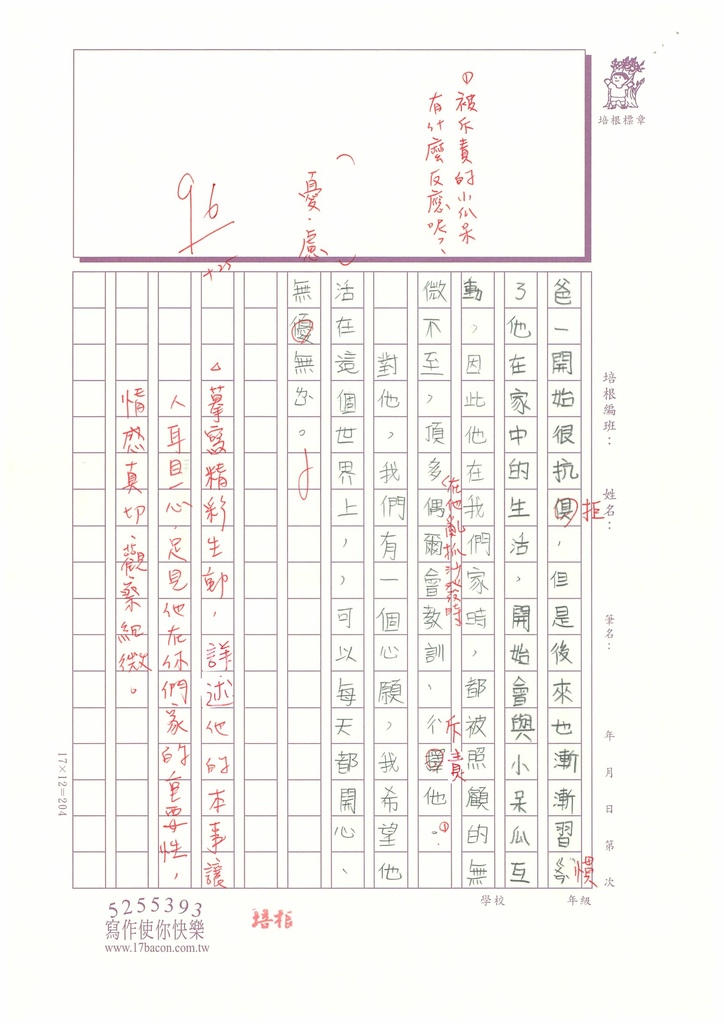 培根標章
①被斥責的小瓜呆
有什麼反應呢?
憂.慮
96
+25
培根編班：
姓名：
筆名：
年 月 日 第 次
爸一開始很抗俱，但是後來也漸漸習
拒
慣
了他在家中的生活，開始會與小呆瓜互
動，因此他在我們家時，都被照顧的無
微不至，頂多偶爾會教訓、
他。
(在他亂抓沙發時
斥責
①
對他，我們有一個心願，我希望他
活在這個世界上，，可以每天都開心、
無優無忽。
△摹寫精彩生動，詳述他的本事讓
人耳目一心，足見他在你們家的重要性，
情感真切，觀察細微。
17×12=204
學校 年級
5255393
寫作使你快樂
www.17bacon.com.tw
培根